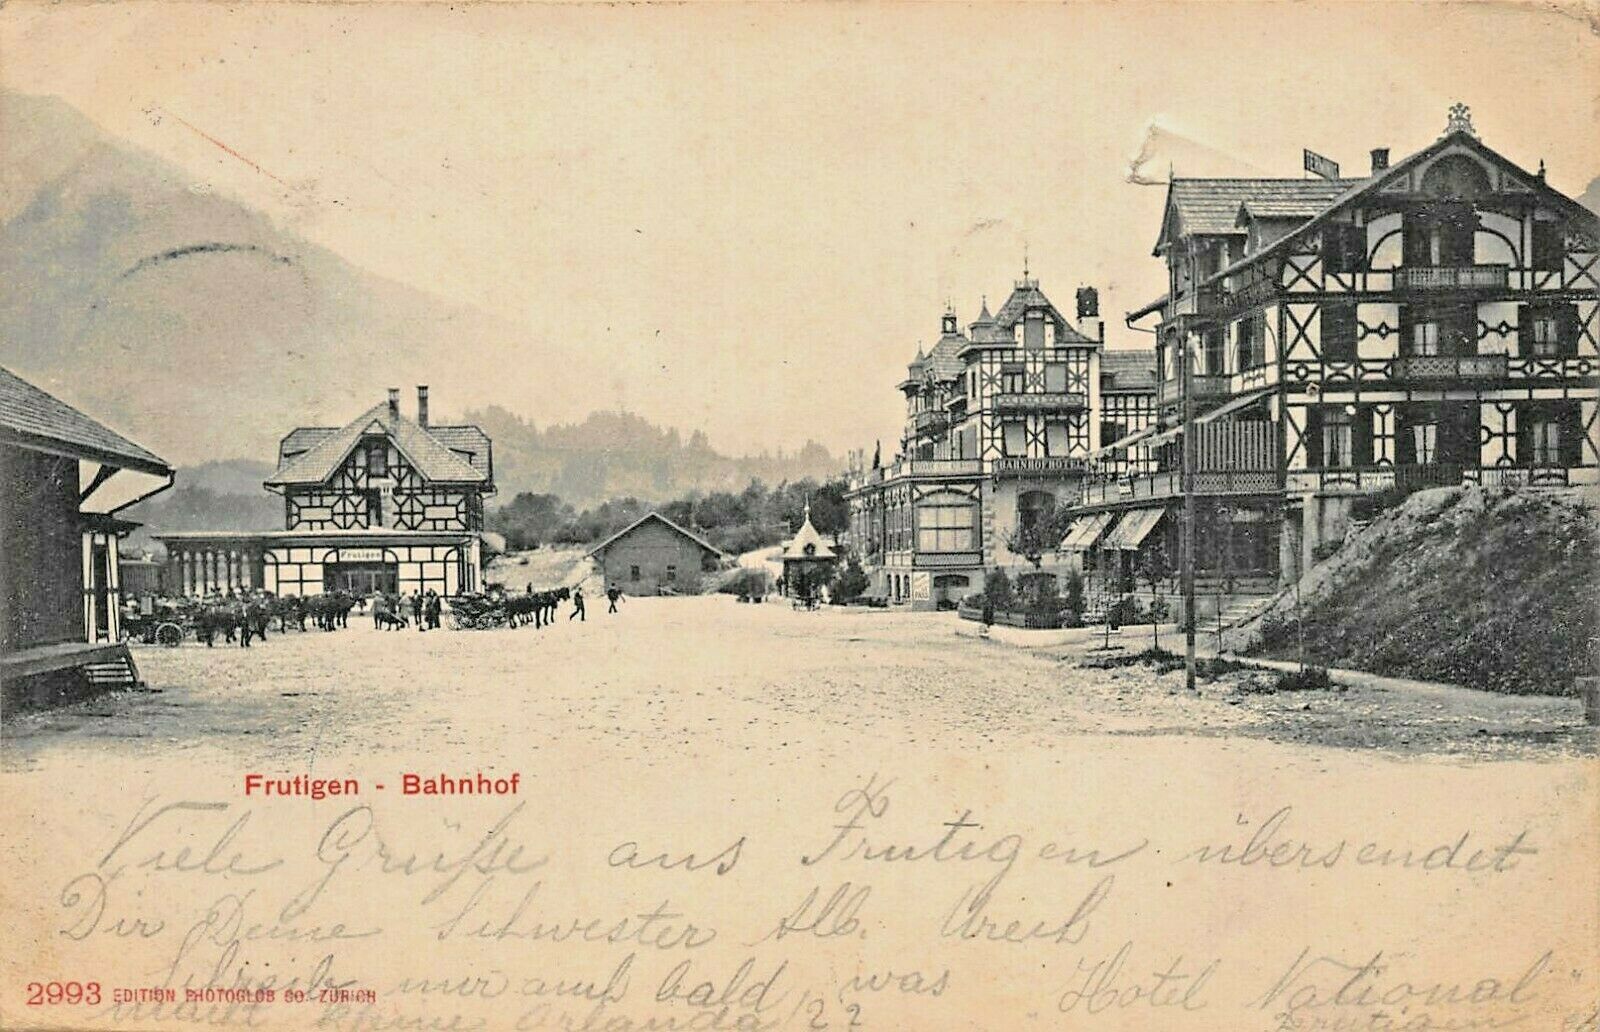 Frutigen
BAHNHOFHOTEL
Frutigen - Bahnhof
Viele Grüße aus Frutigen übersendet
Dir Deine Schwester Alb.
Schreib mir auch bald was "Hotel National"
2993 EDITION PHOTOGLOB CO. ZÜRICH
macht Orlanda ?? Frutigen